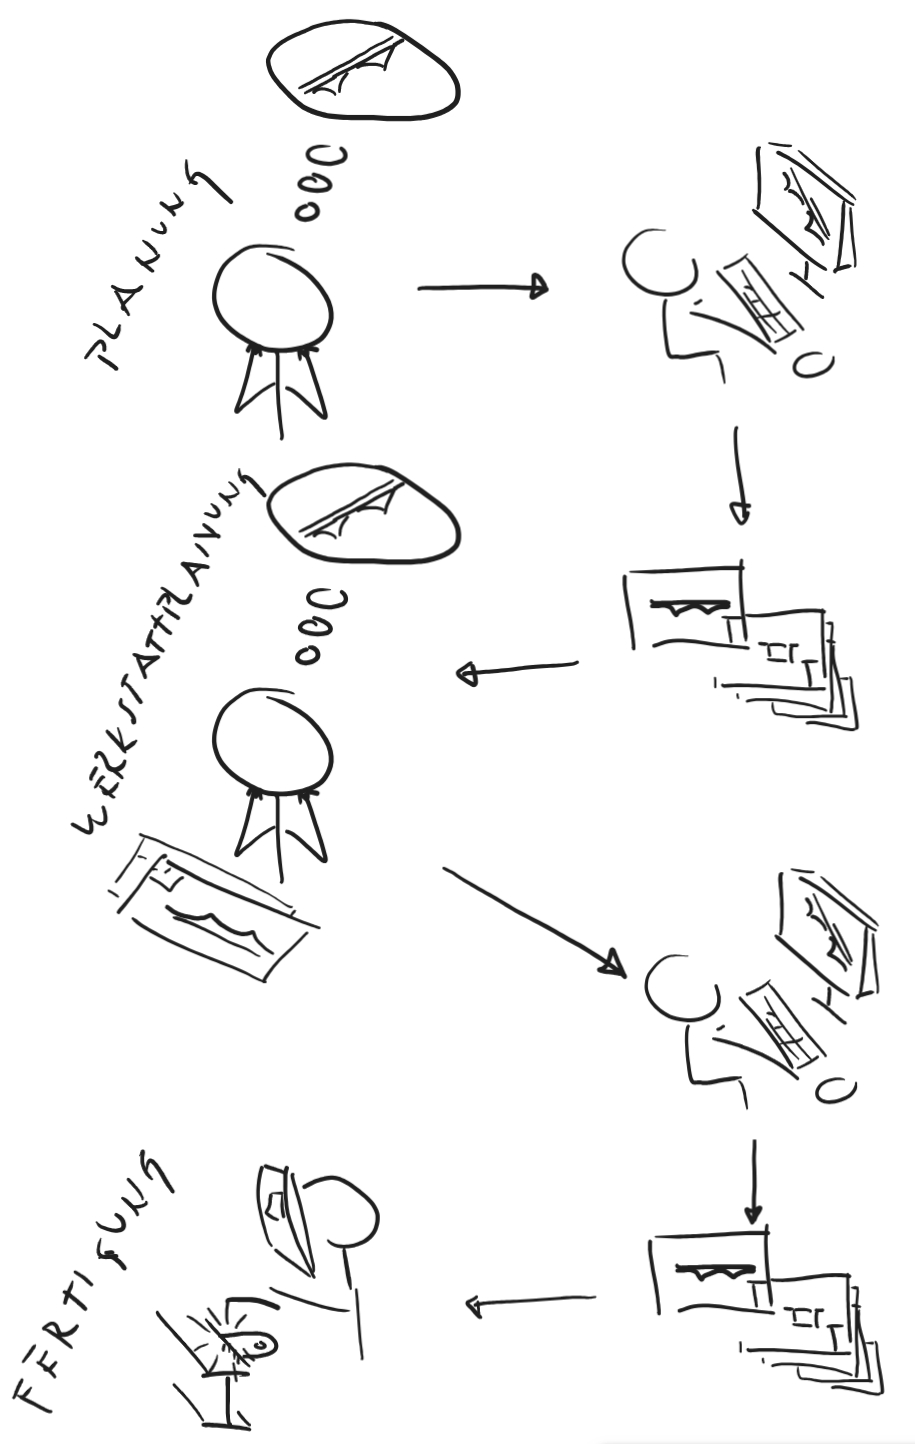 PLANUNG
WERKSTATTPLANUNG
FERTIGUNG